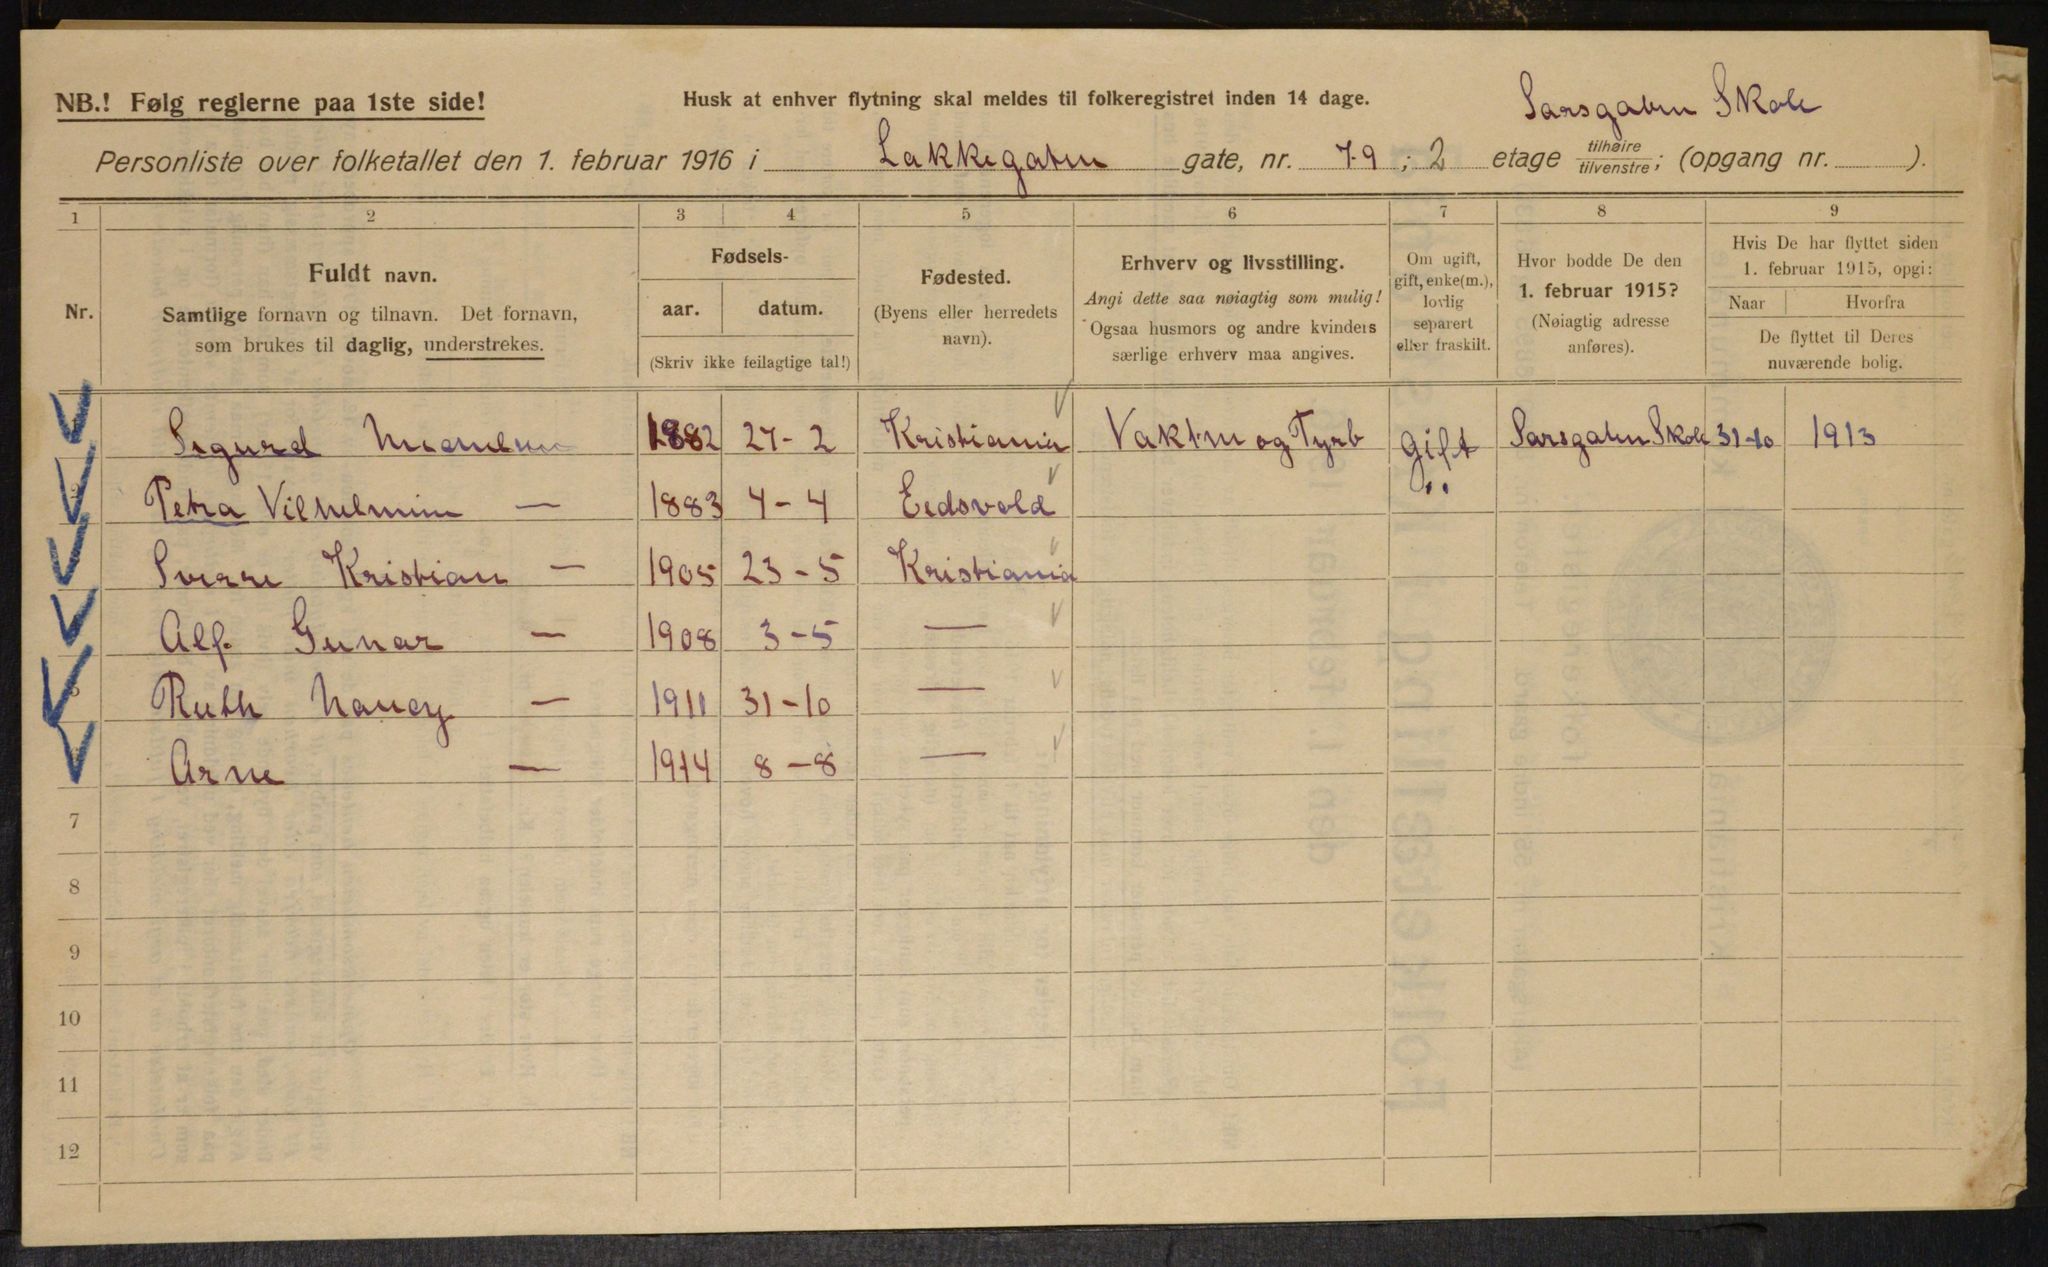 Sarsgaten Skole
NB.! Følg reglerne paa 1ste side! Husk at enhver flytning skal meldes til folkeregistret inden 14 dage.
Personliste over folketallet den 1. februar 1916 i Lakkegaten gate, nr. 79 ; 2 etage tilhøire/tilvenstre; (opgang nr. ).
1 2 3 4 5 6 7 8 9
Nr.
Fuldt navn.
Samtlige fornavn og tilnavn. Det fornavn,
som brukes til daglig, understrekes.
Fødsels-
aar. datum.
(Skriv ikke feilagtige tal!)
Fødested.
(Byens eller herredets
navn).
Erhverv og livsstilling.
Angi dette saa nøiagtig som mulig!
Ogsaa husmors og andre kvinders
særlige erhverv maa angives.
Om ugift,
gift, enke(m.),
lovlig
separert
eller fraskilt.
Hvor bodde De den
1. februar 1915?
(Nøiagtig adresse
anføres).
Hvis De har flyttet siden
1. februar 1915, opgi:
Naar Hvorfra
De flyttet til Deres
nuværende bolig.
Sigurd 1882 27-2 Kristiania Vaktm og Fyrb Gift Sarsgaten Skole 31-10 1913
Petra Vilhelmine — 1883 4-4 Eidsvold "
Sverre Kristian — 1905 23-5 Kristiania
Alf. Gunar — 1908 3-5 —
Ruth Nancy — 1911 31-10 —
Arne — 1914 8-8 —
7
8
9
10
11
12